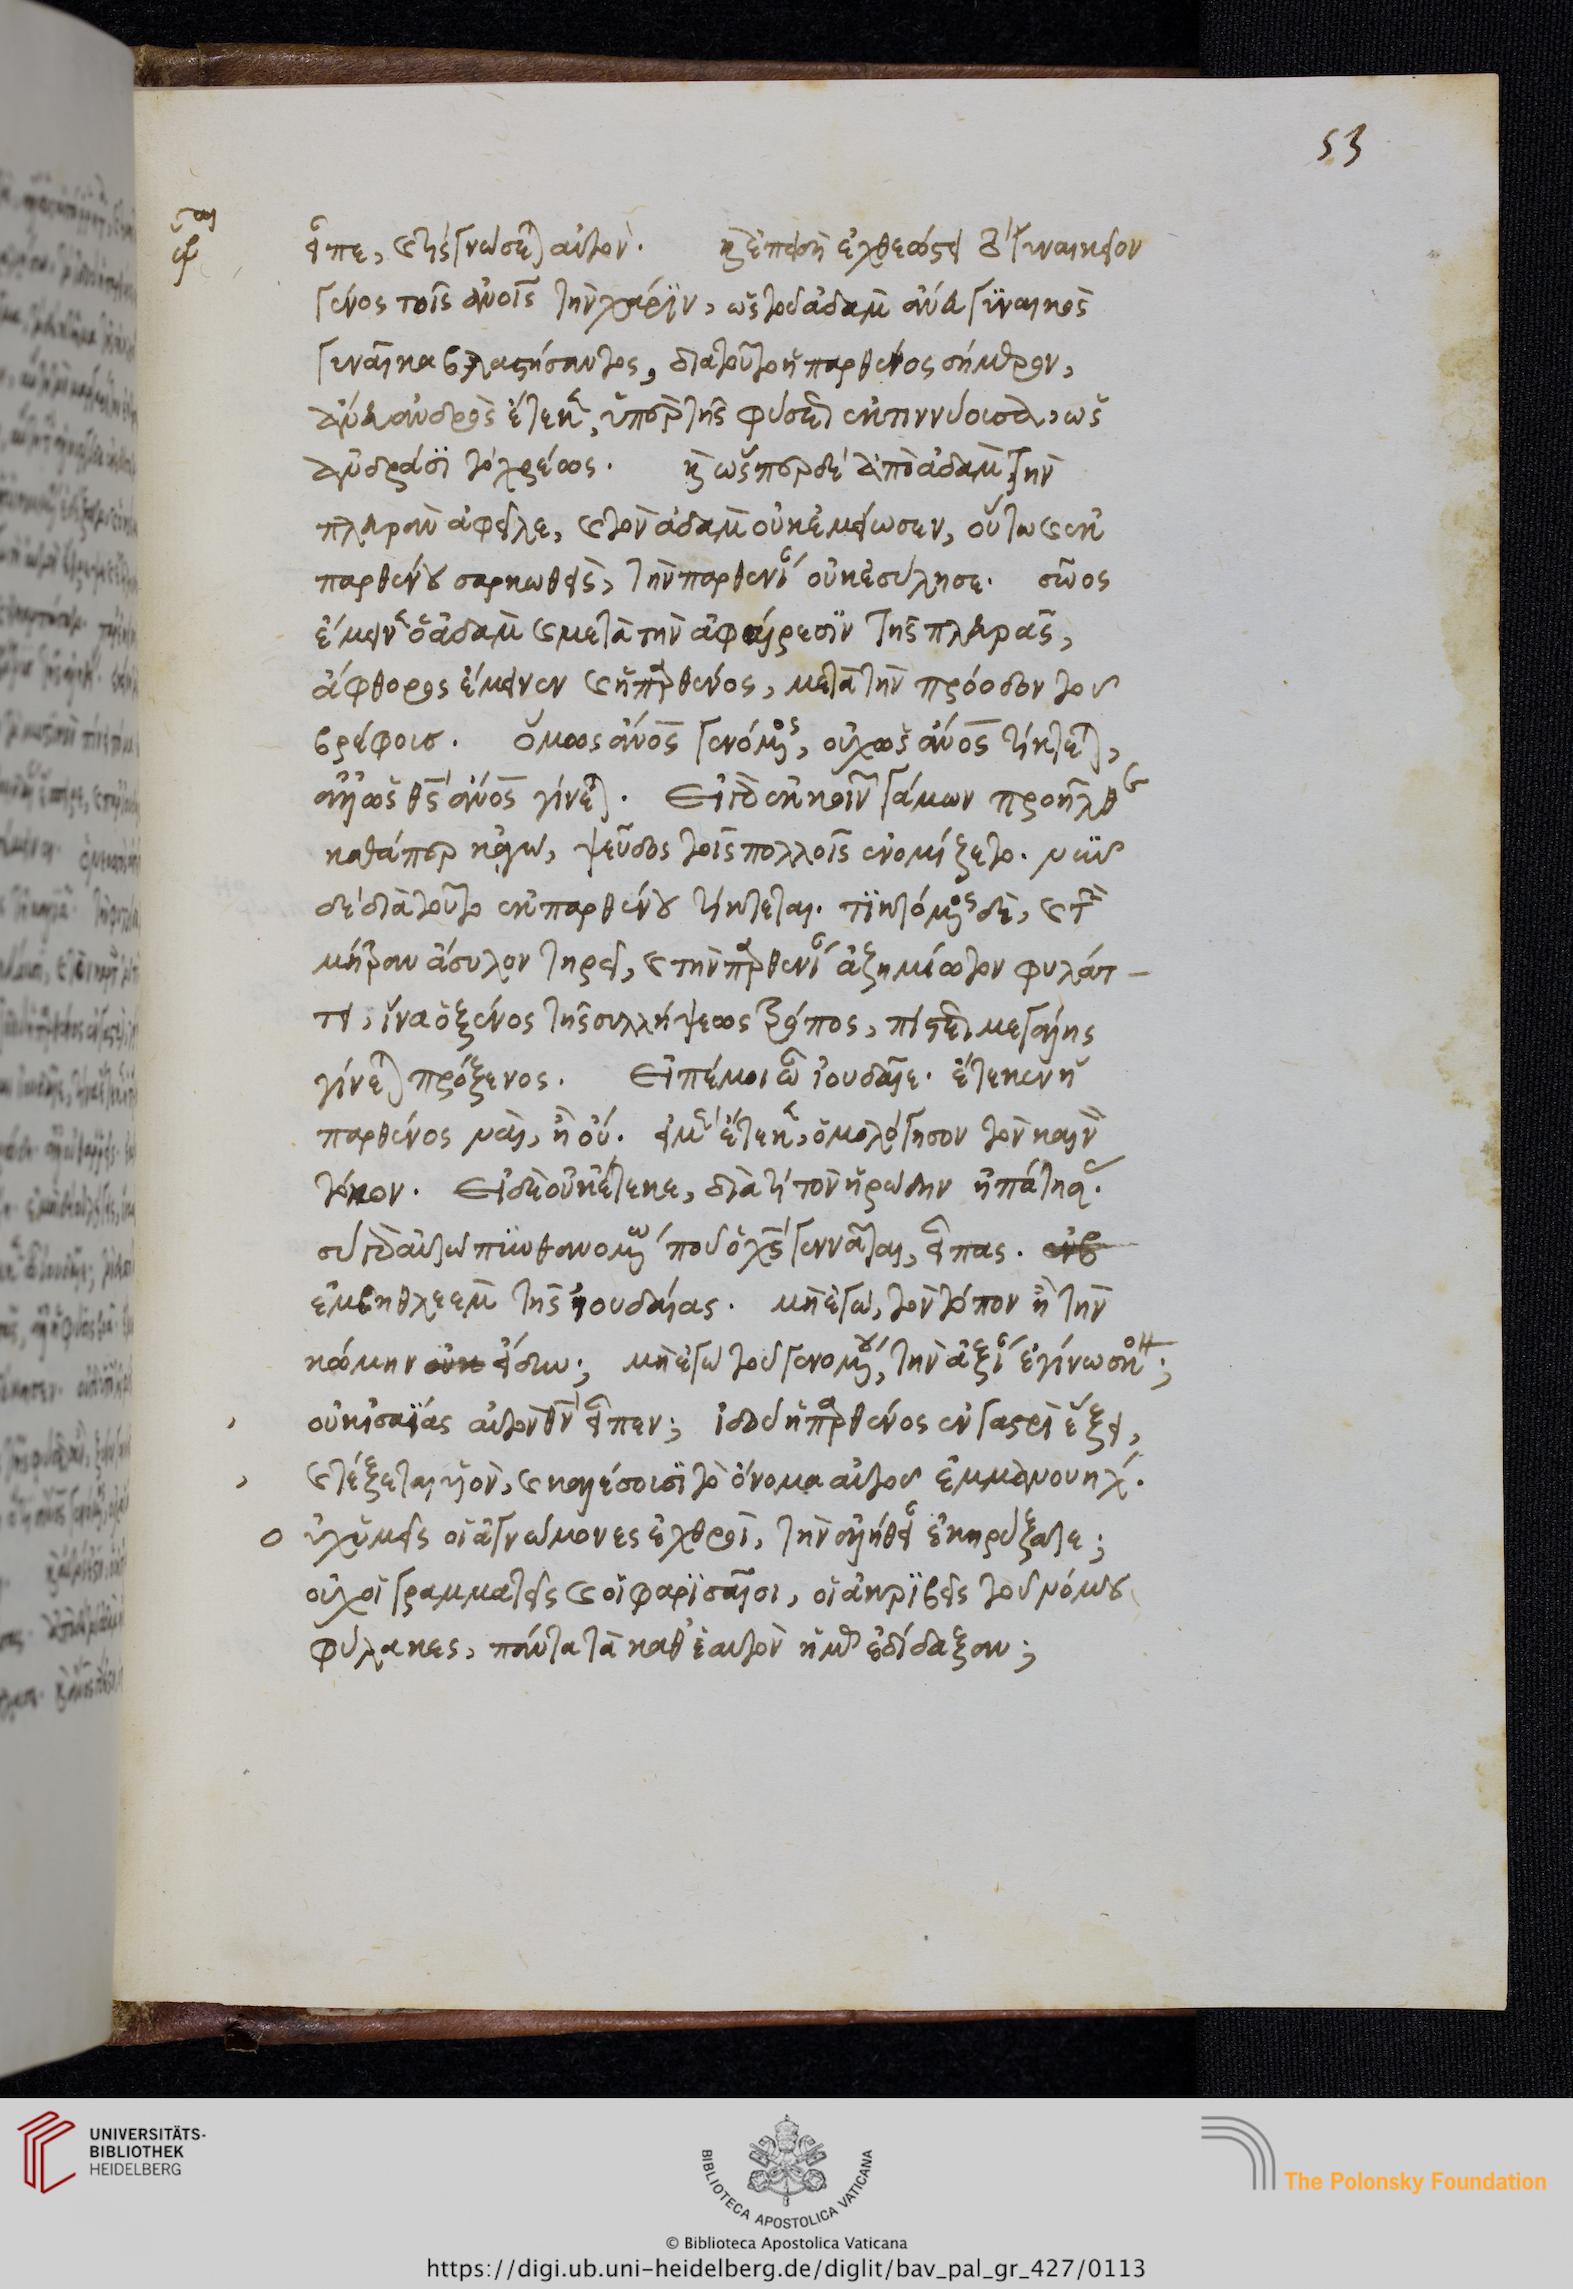 53
εἶπε, καὶ τίς γνώσεται αὐτόν. καὶ ἐπειδὴ ἐχρεώστει τὸ γυναικεῖον
γένος τοῖς ἀνοῖς τὴν χάριν, ὡς τοῦ ἀδὰμ ἄνευ γυναικὸς
γυναῖκα βλαστήσαντος, διατοῦτο ἡ παρθένος σήμερον,
ἄνευ ἀνδρὸς ἔτεκεν, ὑπὲρ τῆς φύσεως ἐκτιννύουσα, ὡς
ἀνδράσι τὸ χρέως. καὶ ὥσπερ δὲ ἀπὸ ἀδὰμ τὴν
πλευρὰν ἀφεῖλε, καὶ τὸν ἀδὰμ οὐκ ἐμείωσεν, οὕτω καὶ ἐκ
παρθένου σαρκωθεὶς, τὴν παρθενίαν οὐκ ἐσύλησε. σῶος
ἔμεινεν ὁ ἀδὰμ καὶ μετὰ τὴν ἀφαίρεσιν τῆς πλευρᾶς,
ἄφθορος ἔμεινεν καὶ ἡ παρθένος, μετὰ τὴν πρόοδον τοῦ
βρέφους. ὅμως ἄνος γενόμενος, οὐχ ὡς ἄνος τίκτεται,
ἀλλ' ὡς θς ἄνος γίνεται. Εἰ γὰρ ἐκ κοινῶν γάμων προῆλθε
καθάπερ κἀγω, ψεῦδος τοῖς πολλοῖς ἐνομίζετο. νῦν
δὲ διὰ τοῦτο ἐκ παρθένου τίκτεται. τικτόμενος δὲ, καὶ τὴν
μήτραν ἄσυλον τηρεῖ, καὶ τὴν παρθενίαν ἀζημίωτον φυλάτ-
τει, ἵνα ὁ ξένος τῆς συλλήψεως τρόπος, πίστεως μεγάλης
γίνεται πρόξενος. Εἰπέ μοι ὦ ἰουδαῖε. ἔτεκεν ἡ
παρθένος ναὶ, ἢ οὔ. εἰ μὲν ἔτεκεν, ὁμολόγησον τὸν καινὸν
τόκον. Εἰ δὲ οὐκ ἔτεκε, διὰ τί τὸν ἡρώδην ἠπάτησας.
σὺ γὰρ αὐτῷ πυνθανομένῳ ποῦ ὁ χς γεννᾶται, εἶπας.
ἐν βηθλεὲμ τῆς ἰουδαίας. μὴ ἐγὼ, τὸν τόπον ἢ τὴν
κώμην οἶδα; μὴ ἐγὼ τοῦ γενομένου, τὴν ἀξίαν ἐγίνωσκον;
οὐκ ἠσαΐας αὐτὸν θν εἶπεν; ἰδοὺ ἡ παρθένος ἐν γαστρὶ ἕξει,
καὶ τέξεται υἱὸν, καὶ καλέσουσι τὸ ὄνομα αὐτοῦ ἐμμανουηλ.
οὐχ ὑμεῖς οἱ ἀγνώμονες ἐχθροὶ, τὴν ἀλήθειαν ἐκηρύξατε;
οὐχ οἱ γραμματεῖς καὶ οἱ φαρισαῖοι, οἱ ἀκριβεῖς τοῦ νόμου
φύλακες, πάντα τὰ καθ' ἑαυτὸν ἡμᾶς ἐδίδαξαν;
UNIVERSITÄTS-
BIBLIOTHEK
HEIDELBERG
BIBLIOTECA APOSTOLICA VATICANA
The Polonsky Foundation
© Biblioteca Apostolica Vaticana
https://digi.ub.uni-heidelberg.de/diglit/bav_pal_gr_427/0113